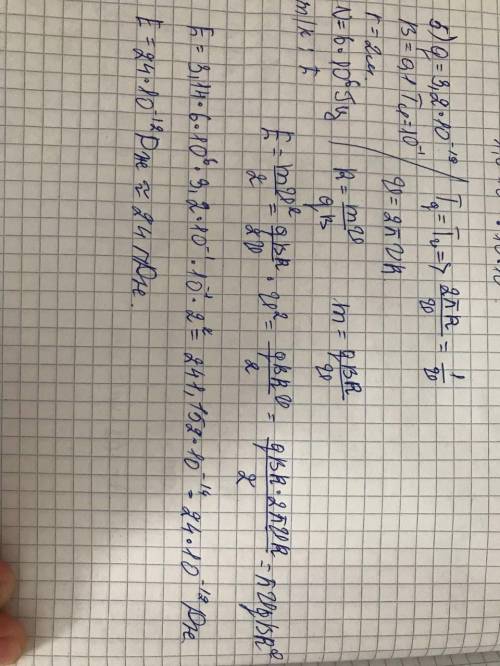 б) q = 3,2·10⁻¹⁹
B = 0,1 Тл = 10⁻¹
r = 2м
ν = 6·10⁶ Гц
m/к; E
Tq = Tν => 2πR/υ = 1/ν
υ = 2πνR
R = mυ/qB
m = qBR/υ
E = mυ²/2 = qBR/2υ · υ² = qBRυ/2 = qBR·2πνR/2 = πνqBR²
E = 3,14·6·10⁶·3,2·10⁻¹·10⁻¹·2² = 241,152·10⁻¹⁴ = 24·10⁻¹² Дж
E = 24·10⁻¹² Дж ≈ 24 пДж.